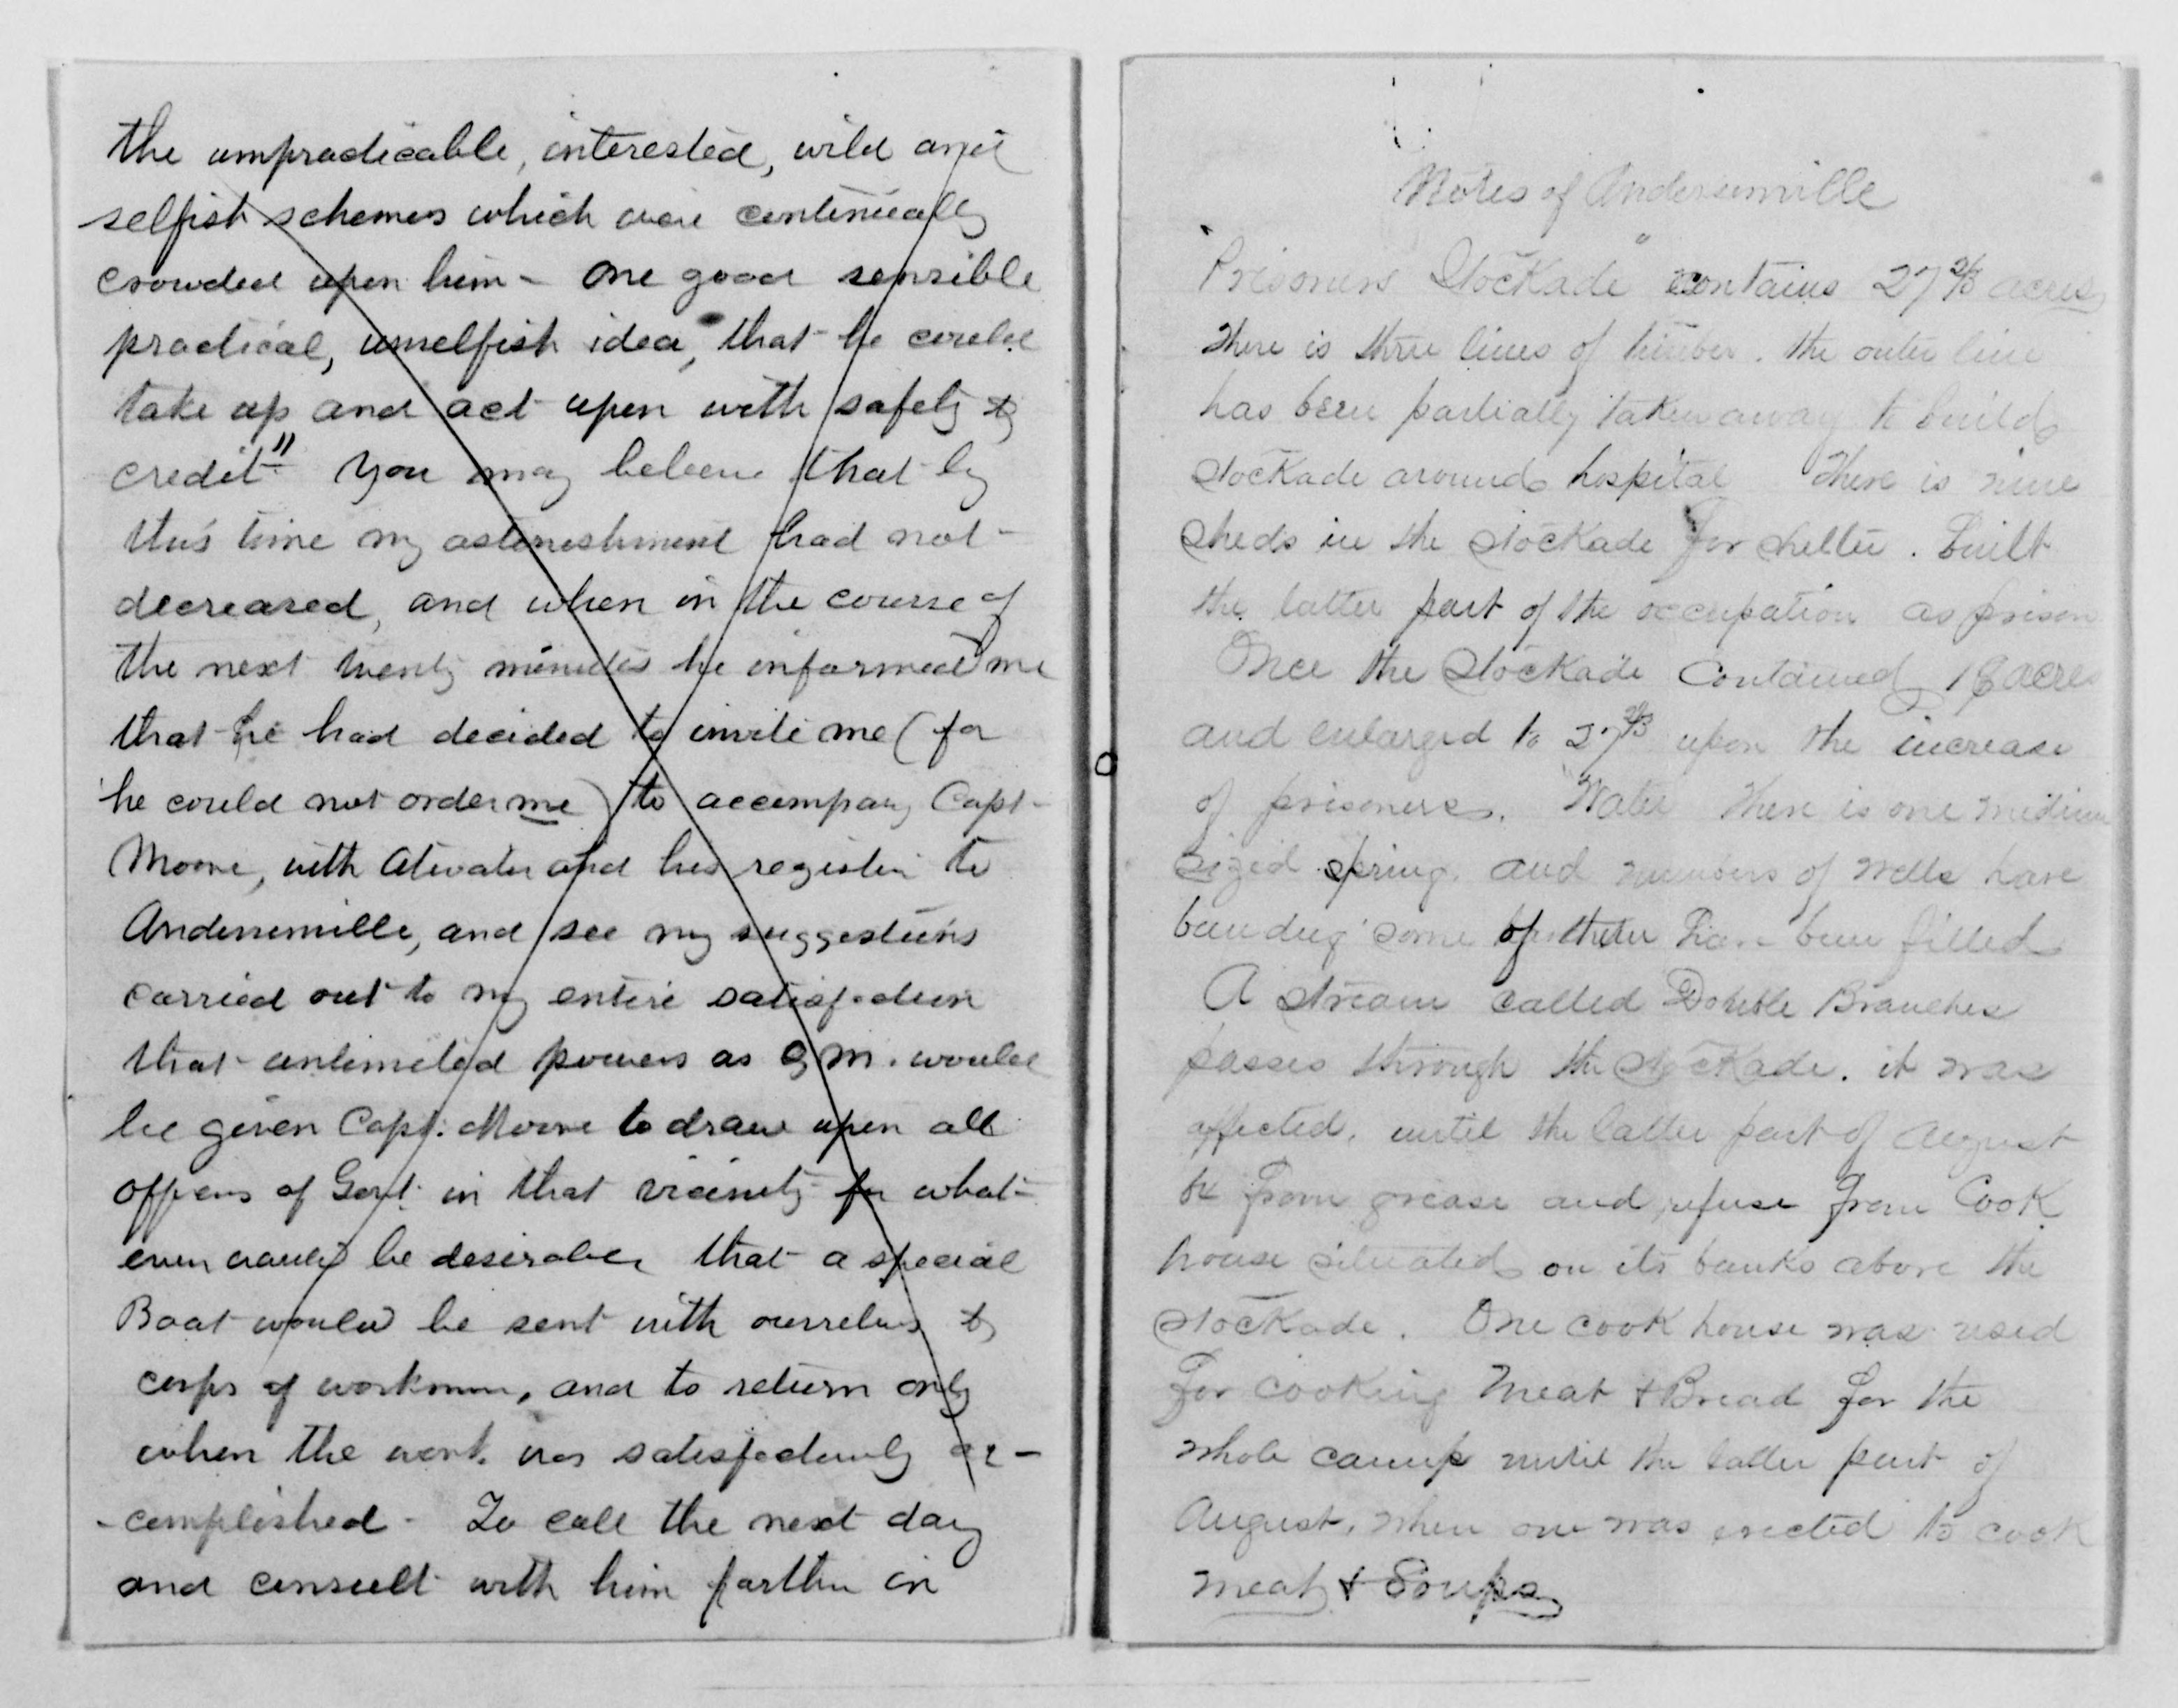 the impracticable, interested, wild and
selfish schemes which were continually
crowded upon him - one good sensible
practical, unselfish idea, that he could
take up and act upon with safety &
credit" You may believe that by
this time my astonishment had not
decreased, and when in the course of
the next twenty minutes he informed me
that he had decided to invite me (for
he could not order me) to accompany Capt
Moore, with Atwater and his register to
Andersonville, and see my suggestions
carried out to my entire satisfaction
that unlimited powers as Q M. would
be given Capt. Moore to draw upon all
officers of Govt. in that vicinity for what-
ever would be desirable, that a special
Boat would be sent with ourselves &
corps of workmen, and to return only
when the work was satisfactorily ac-
-complished - To call the next day
and consult with him farther in
Notes of Andersonville
Prisoners Stockade" contains 27 2/3 acres
There is three lines of timber. the outer line
has been partially taken away to build
Stockade around hospital There is nine
Sheds in the Stockade for shelter. Built
the latter part of the occupation as prison
Once the Stockade contained 18 acres
and enlarged to 27 2/3 upon the increase
of prisoners. Water There is one medium
sized spring. and numbers of wells have
been dug some of them have been filled
A stream called Double Branches
passes through the Stockade. it was
affected, until the latter part of August
from grease and refuse from Cook
house situated on its banks above the
Stockade. One cook house was used
for cooking Meat & Bread for the
whole camp until the latter part of
August, when one was erected to cook
meat & Soups